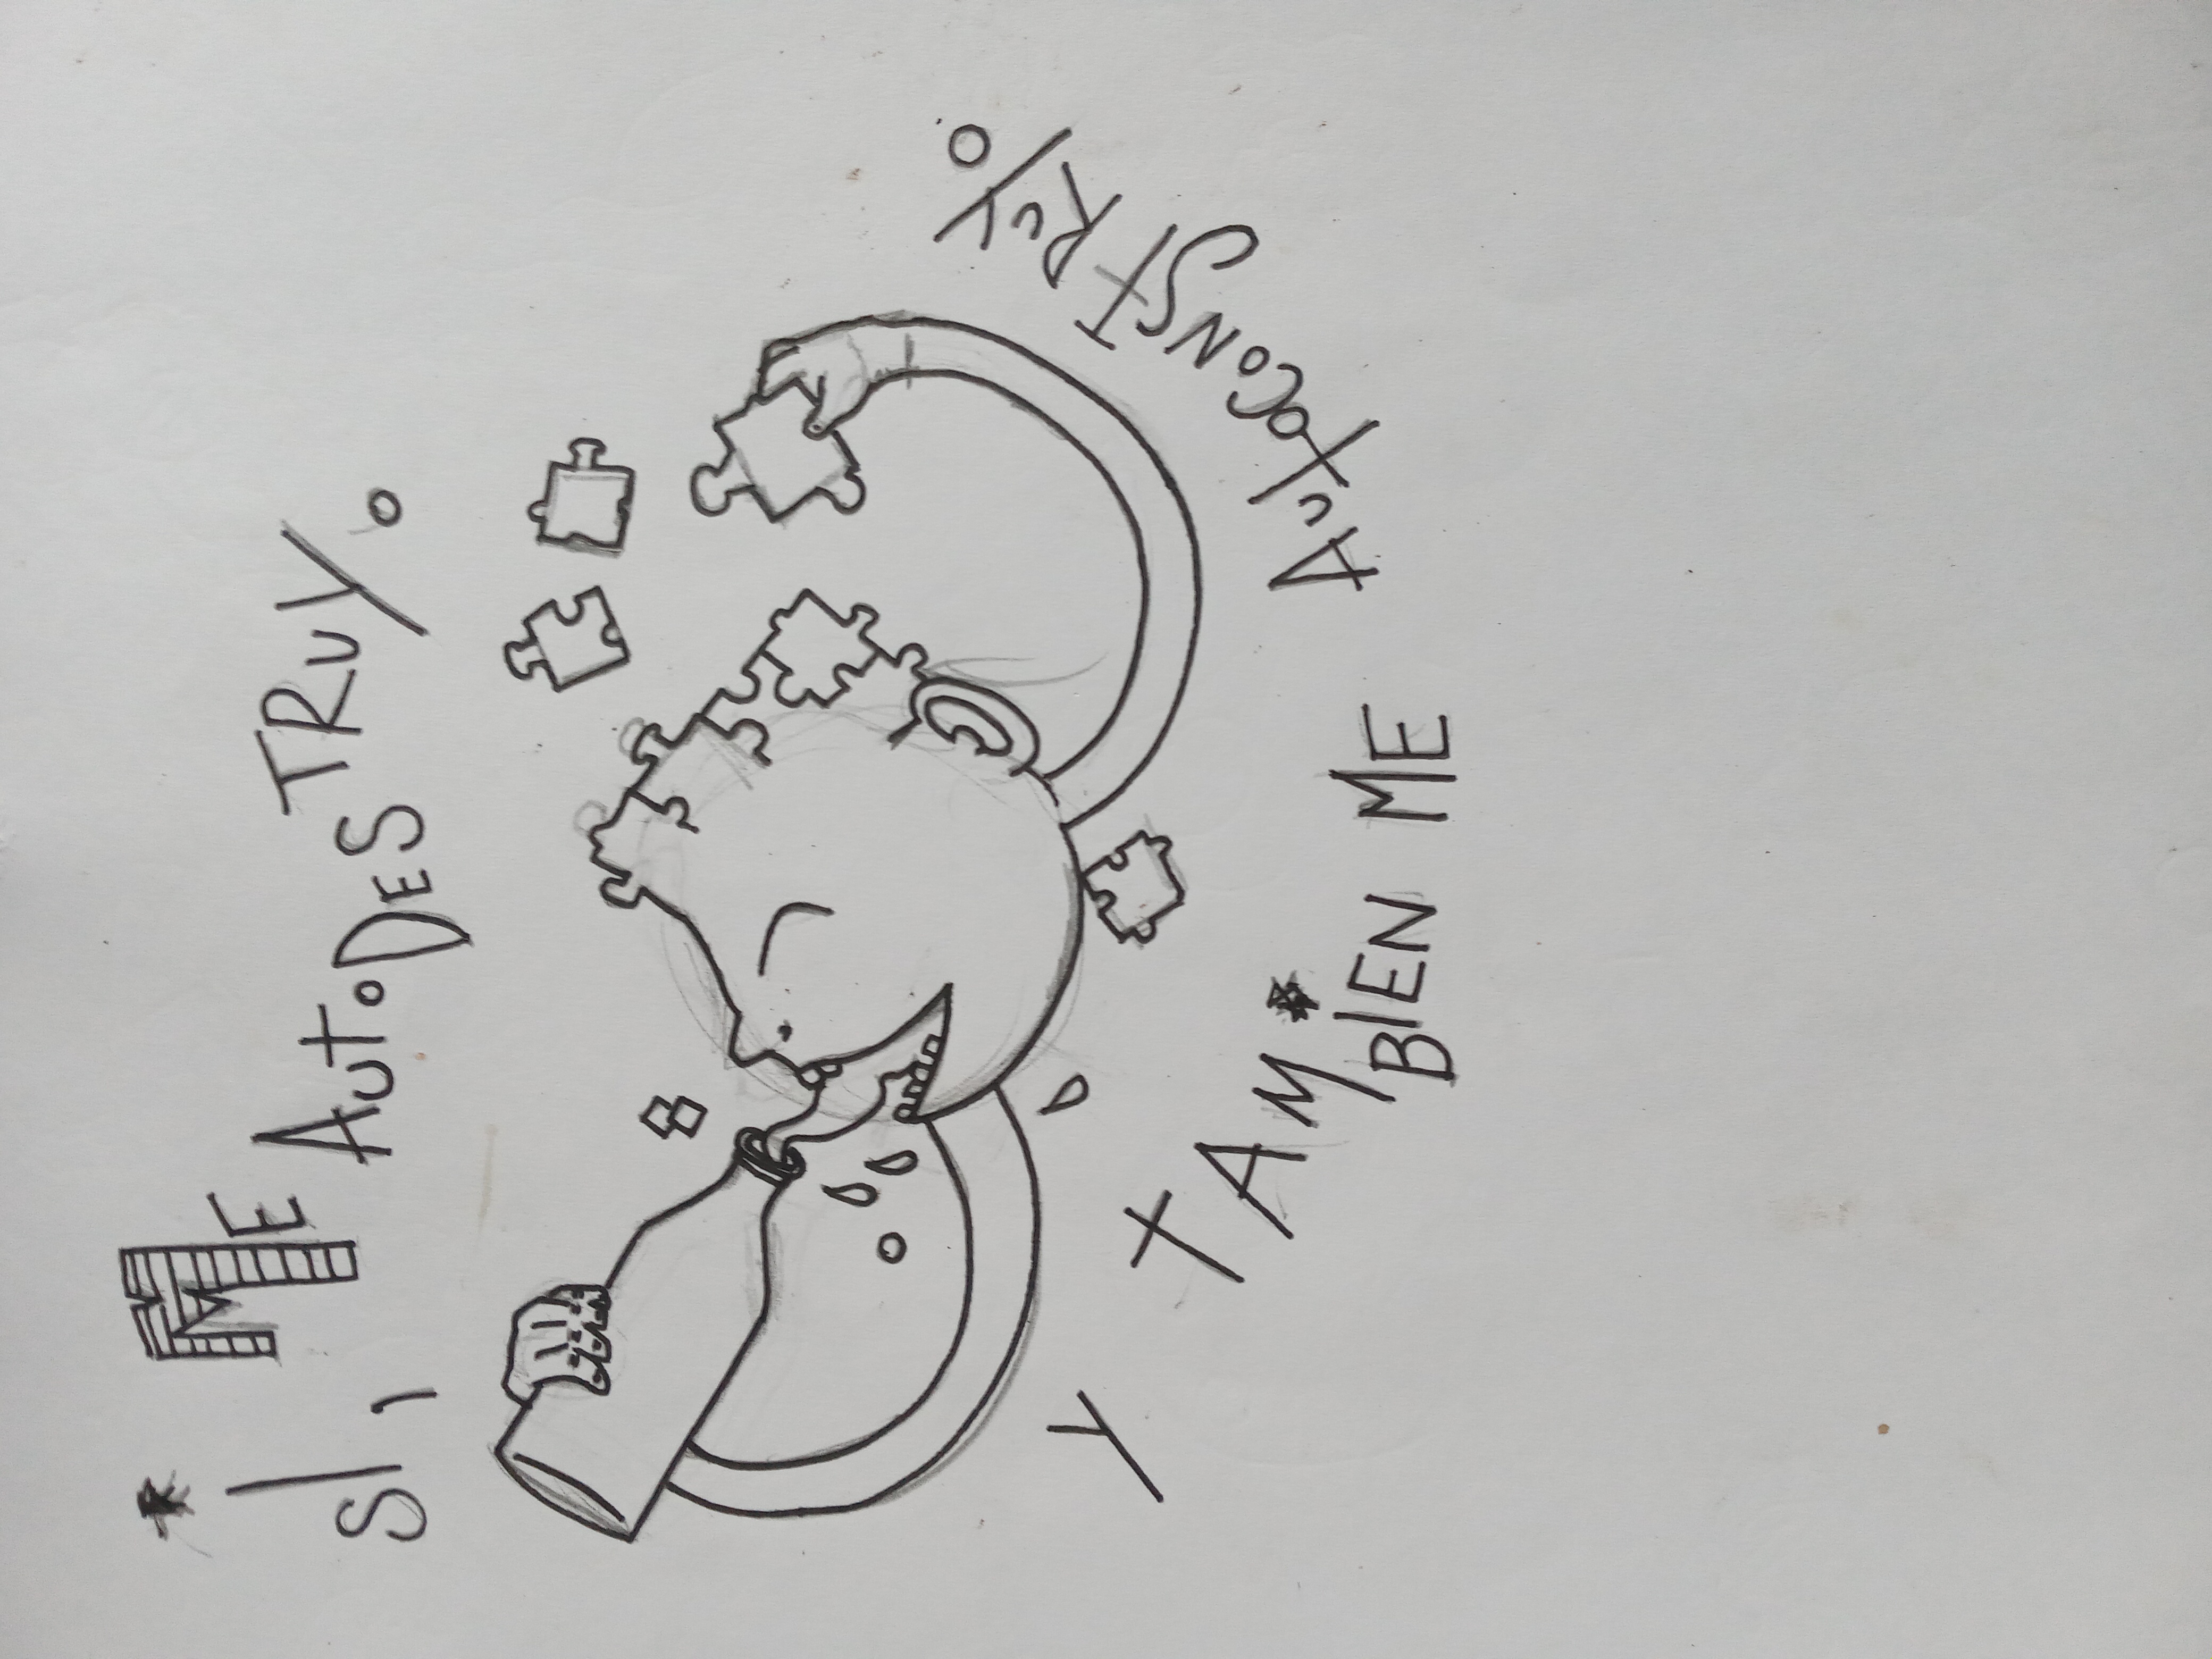 SI, ME AUTODESTRUYO
Y TAMBIEN ME AUTOCONSTRUYO